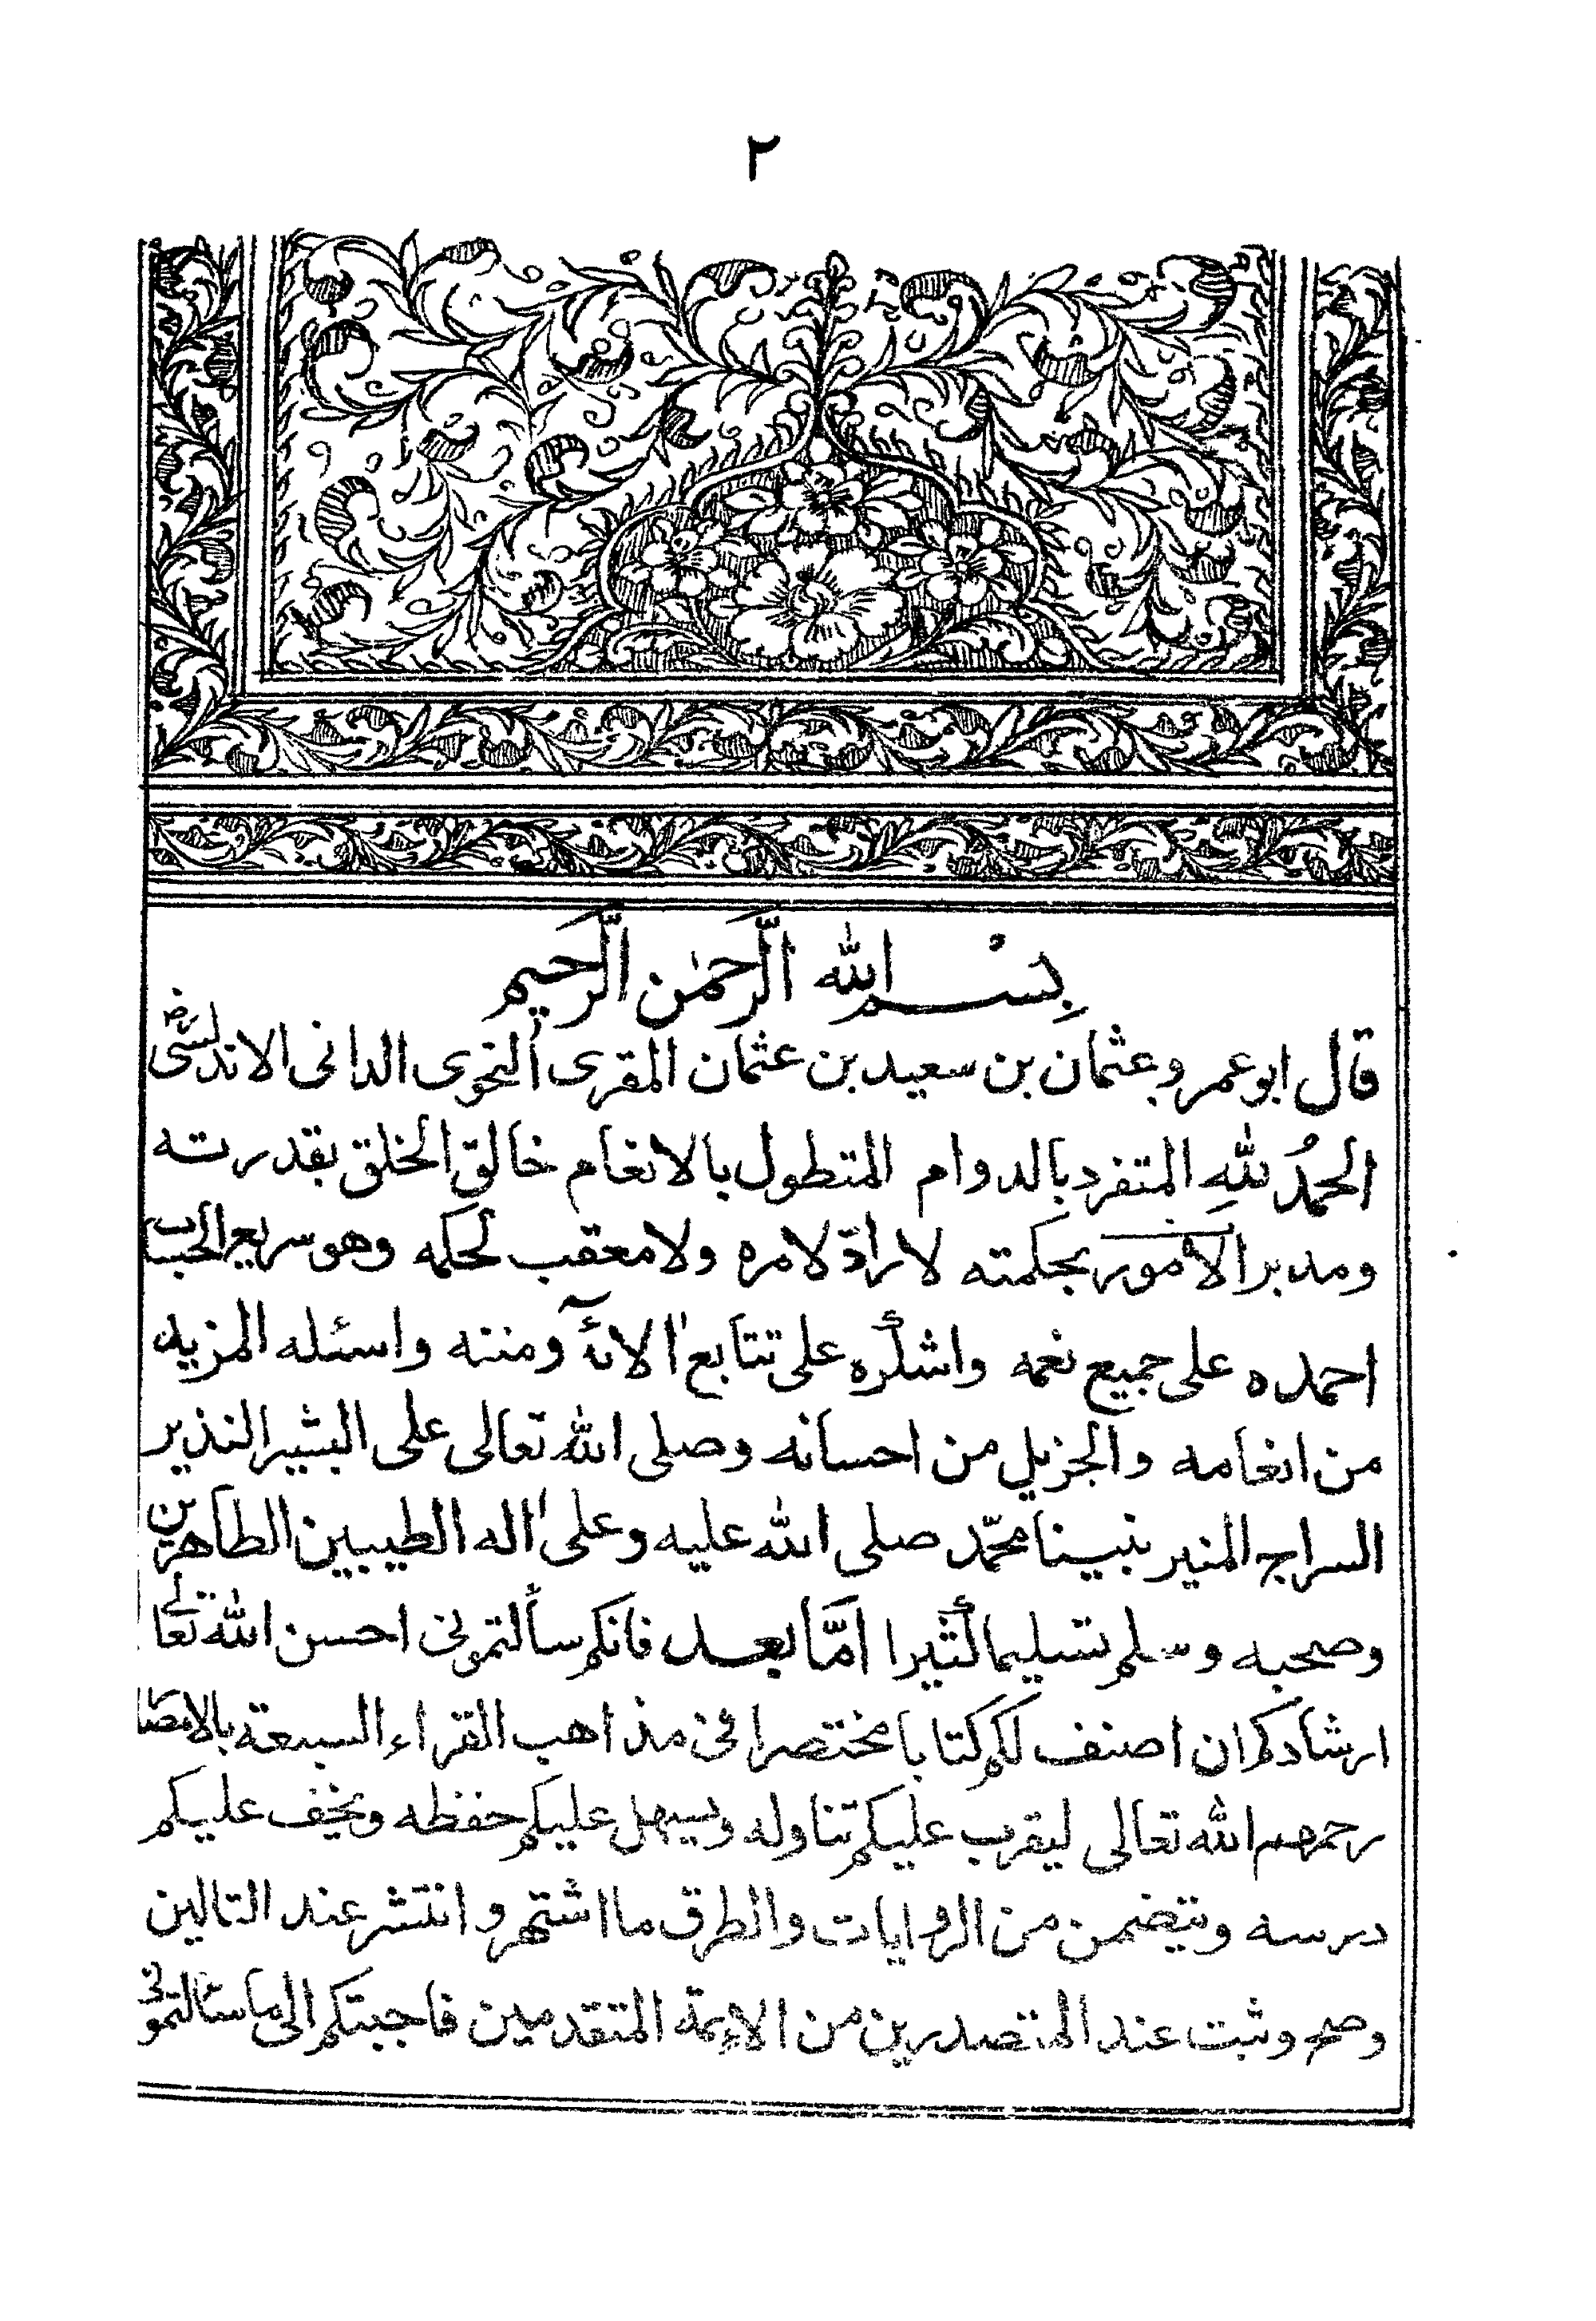 ٢
بِسْــمِ الله الرَّحمٰن الرَّحيم
قال ابو عمرو عثمان بن سعيد بن عثمان المقرى النحوى الدانى الاندلسى رض
الحمدُ للهِ المتفرد بالدوام المتطول بالانعام خالق الخلق بقدرته
ومدبر الامور بحكمته لا رادّ لامره ولا معقب لحكمه وهو سريع الحساب
احمده على جميع نعمه واشكره على تتابع اٰلائه ومننه واسئله المزيد
من انعامه والجزيل من احسانه وصلى الله تعالى على البشير النذير
السراج المنير نبينا محمّد صلى الله عليه وعلى اٰله الطيبين الطاهرين
وصحبه وسلم تسليما كثيرا امّا بعــد فانكم سألتمونى احسن الله تعالى
ارشادكم ان اصنف لكم كتابا مختصرا فى مذاهب القراء السبعة بالامصار
رحمهم الله تعالى ليقرب عليكم تناوله ويسهل عليكم حفظه ويخف عليكم
درسه ويتضمن من الروايات والطرق ما اشتهر وانتشر عند التالين
وصح وثبت عند المتصدرين من الايمة المتقدمين فاجبتكم الى ما سئالتمونى